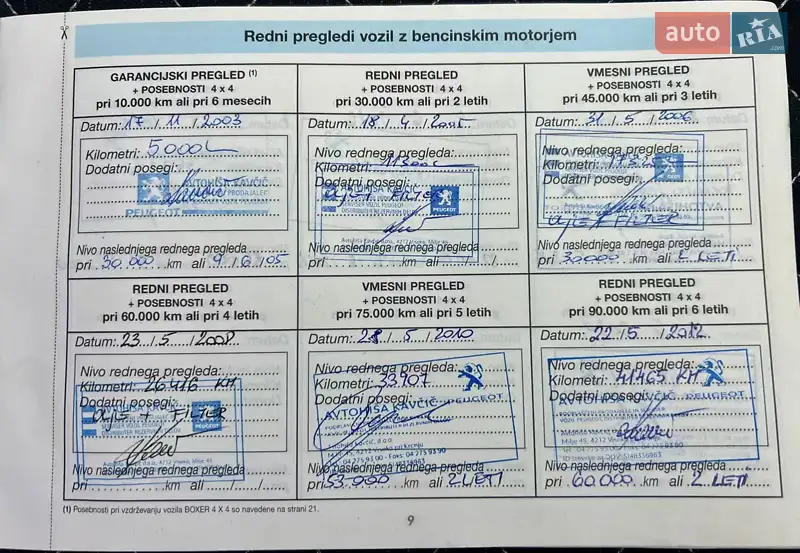 auto RIA .com
Redni pregledi vozil z bencinskim motorjem
GARANCIJSKI PREGLED (1)
+ POSEBNOSTI 4 x 4
pri 10.000 km ali pri 6 mesecih
Datum: 17 / 11 / 2003
Kilometri: 5000
Dodatni posegi:
AVTOHIŠA KAVČIČ
PEUGEOT
Nivo naslednjega rednega pregleda
pri 30.000 km ali 9/6/05
REDNI PREGLED
+ POSEBNOSTI 4 x 4
pri 30.000 km ali pri 2 letih
Datum: 18 / 4 / 2005
Nivo rednega pregleda:
Kilometri:
Dodatni posegi:
AVTOHIŠA KAVČIČ
OLJE + FILTER
PEUGEOT
Nivo naslednjega rednega pregleda
pri km ali / /
VMESNI PREGLED
+ POSEBNOSTI 4 x 4
pri 45.000 km ali pri 3 letih
Datum: 31 / 5 / 2006
Nivo rednega pregleda:
Kilometri:
Dodatni posegi:
OLJE + FILTER
Nivo naslednjega rednega pregleda
pri 30000 km ali 2 LETI
REDNI PREGLED
+ POSEBNOSTI 4 x 4
pri 60.000 km ali pri 4 letih
Datum: 23 / 5 / 2008
Nivo rednega pregleda:
Kilometri: 26416 KM
Dodatni posegi:
OLJE + FILTER
PEUGEOT
Nivo naslednjega rednega pregleda
pri km ali / /
VMESNI PREGLED
+ POSEBNOSTI 4 x 4
pri 75.000 km ali pri 5 letih
Datum: 28 / 5 / 2010
Nivo rednega pregleda:
Kilometri: 33907
Dodatni posegi:
AVTOHIŠA KAVČIČ PEUGEOT
Kavčič, d.o.o.
Milje 45, 4212 Visoko pri Kranju
Nivo naslednjega rednega pregleda
pri 53.000 km ali 2 LETI
REDNI PREGLED
+ POSEBNOSTI 4 x 4
pri 90.000 km ali pri 6 letih
Datum: 22 / 5 / 2012
Nivo rednega pregleda:
Kilometri: 41465 KM
Dodatni posegi:
AVTOHIŠA KAVČIČ PEUGEOT
Milje 45, 4212 Visoko
Nivo naslednjega rednega pregleda
pri 60.000 km ali 2 LETI
(1) Posebnosti pri vzdrževanju vozila BOXER 4 X 4 so navedene na strani 21.
9